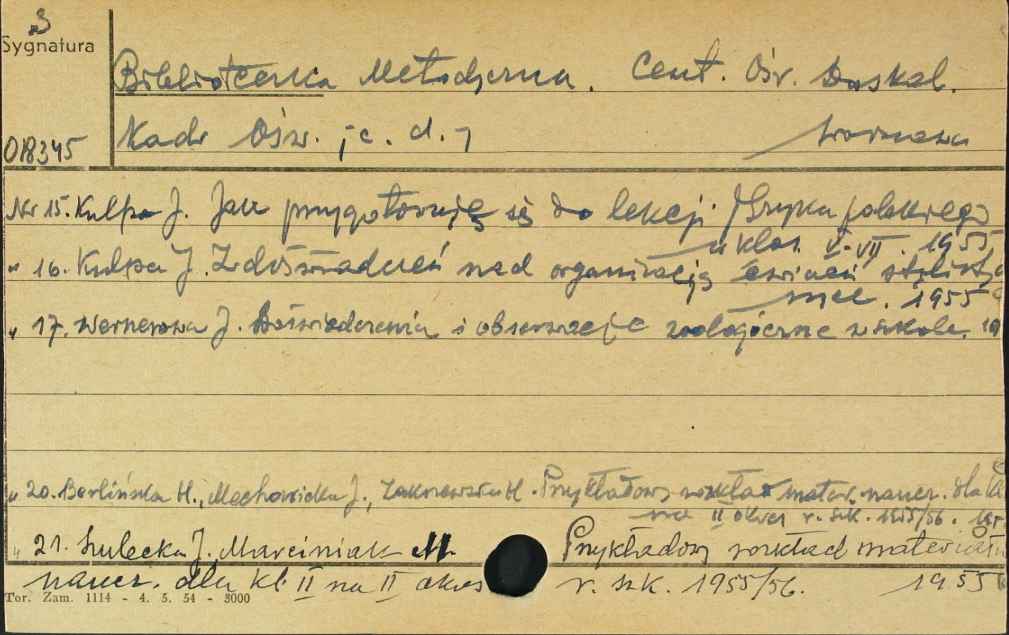 3
Sygnatura
Biblioteczka Metodyczna. Cent. Ośr. Doskal.
018345
Kadr Ośw. /c. d./ Warszawa
Nr 15. Kulpa J. Jak przygotowuję się do lekcji języka polskiego
w klas. V-VII. 1955
" 16. Kulpa J. Z doświadczeń nad organizacją ćwiczeń stylisty
1955
" 17. Wernerowa J. Doświadczenia i obserwacje zoologiczne w szkole. 19
" 20. Berlińska H., Mechowicka J., Zakrzewska H. Przykładowy rozkład mater. naucz. dla kl
na II okres r. szk. 1955/56.
" 21. Szulecka J. Marciniak M. Przykładowy rozkład materiału
naucz. dla kl II na II okres r. szk. 1955/56. 1955
Tor. Zam. 1114 - 4. 5. 54 - 3000